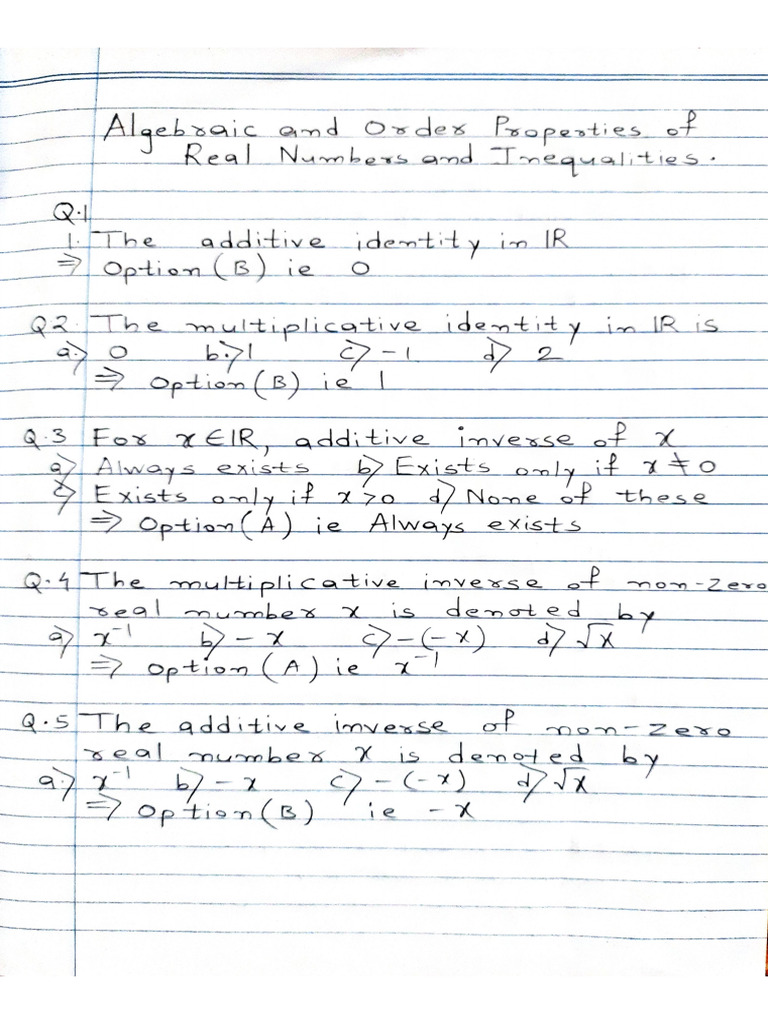 Algebraic and Order Properties of
Real Numbers and Inequalities.
Q.1
1. The additive identity in IR
⇒ Option (B) ie 0
Q2. The multiplicative identity in IR is
a.) 0 b.) 1 c) -1 d) 2
⇒ Option (B) ie 1
Q.3 For x ∈ IR, additive inverse of x
a) Always exists b) Exists only if x ≠ 0
c) Exists only if x > 0 d) None of these
⇒ Option (A) ie Always exists
Q.4 The multiplicative inverse of non-zero
real number x is denoted by
a) x⁻¹ b) - x c) - (- x) d) √x
⇒ Option (A) ie x⁻¹
Q.5 The additive inverse of non-zero
real number x is denoted by
a.) x⁻¹ b) - x c) - (- x) d) √x
⇒ Option (B) ie - x